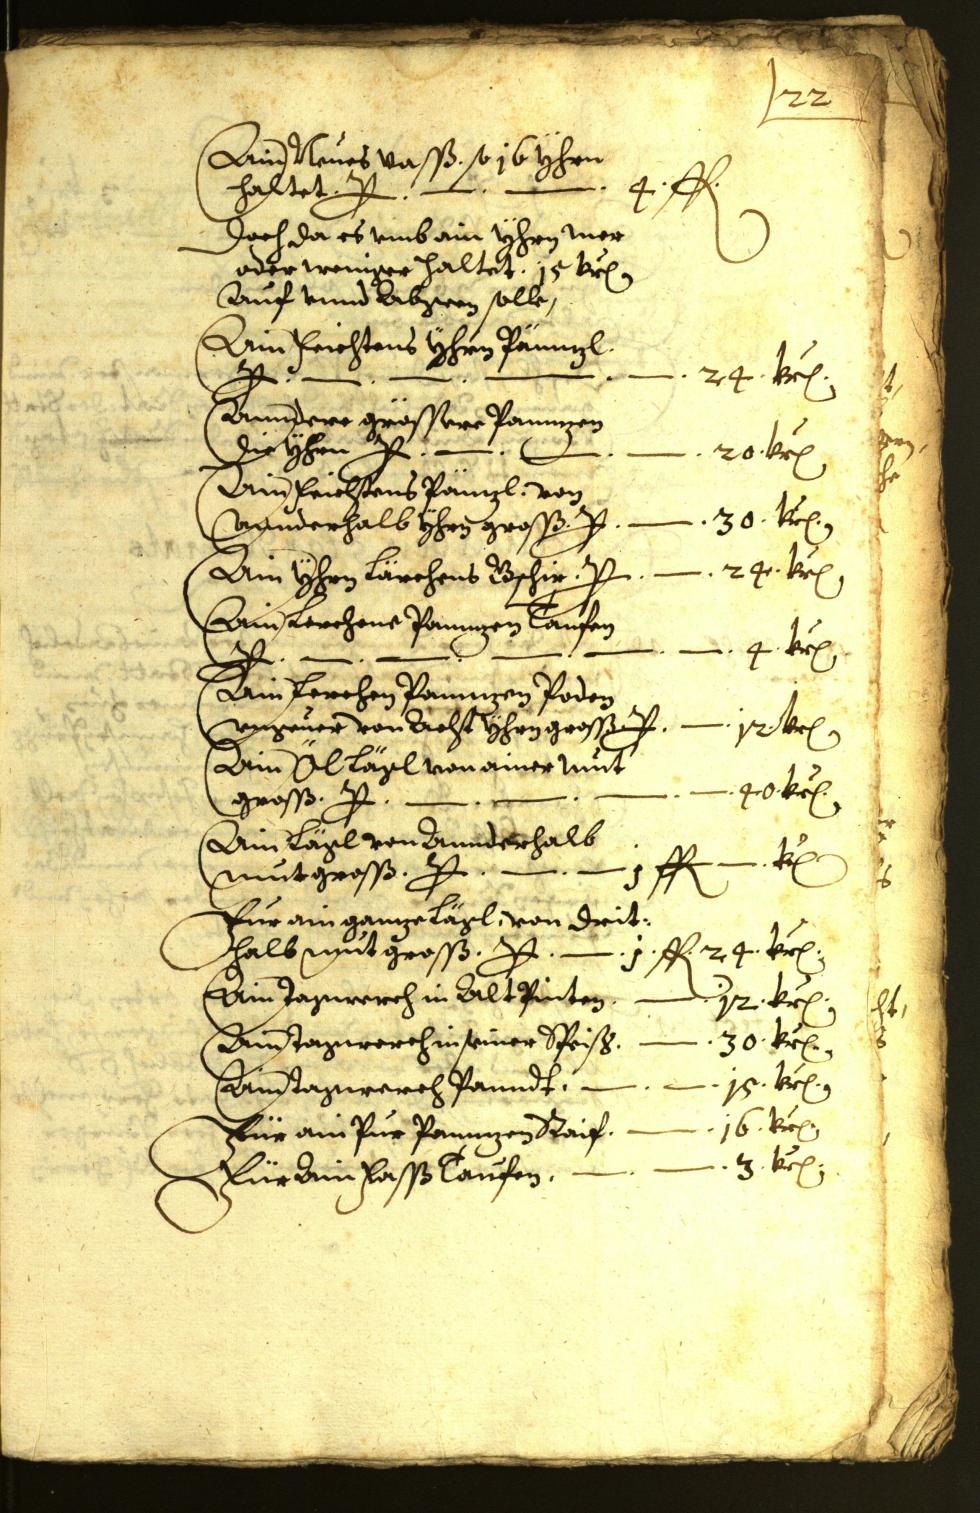 22
Ain Neues vass. so 16 Yhrn
haltet. P. — . — . 4. fl
doch da es umb ain Yhrn mer
oder weniger haltet. 15 krz
auf unnd abgeen solle,
Ain feichtens Yhrn Pänntzl.
P. — . — . — . — . 24. krz.
Anndere grössere Panntzen
die Yhrn P. — . — . — . 20. krz
Ain feichtens Päntzl. von
annderhalb Yhrn gross. P. — . 30. krz.
Ain Yhrn Lärchens Gschir. P. — . 24. krz
Ain Lerchene Panntzen Taufen
P. — . — . — . — . 4 krz
Ain Lerchen Panntzen Poden
ungeuer von Acht Yhrn gross. P. — 12 krz
Ain Öl Lägl von ainer Mut
gross. P. — . — . — . 40. krz.
Ain Lägl von Annderhalb
mut gross. P. — . — 1 fl — . kr
Fur ain gantze Lägl. von drit:
halb mut gross. P. — . 1. fl. 24. krz.
Ain Tagwerch in Alt Pinten. — . 12. krz.
Ain Tagwerch in seiner Speiss. — . 30. krz.
Ain Tagwerch Panndt. — . — . 15. krz.
Für ain Pur Panntzen Raif. — . 16. krz
Für Ain Fass Taufen. — . — . 3. krz.